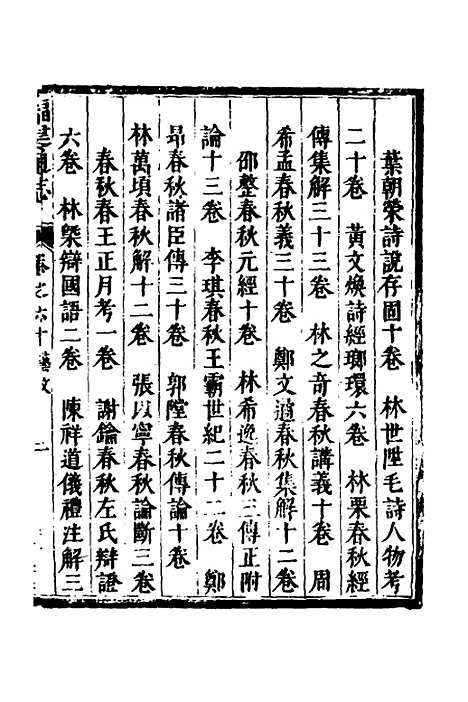 葉朝榮詩說存固十卷　林世陞毛詩人物考
二十卷　黃文煥詩經瑯環六卷　林栗春秋經
傳集解三十三卷　林之奇春秋講義十卷　周
希孟春秋義三十卷　鄭文遹春秋集解十二卷
邵整春秋元經十卷　林希逸春秋三傳正附
論十三卷　李琪春秋王霸世紀二十二卷　鄭
昂春秋諸臣傳三十卷　郭陞春秋傳論十卷
林萬頃春秋解十二卷　張以寧春秋論斷三卷
春秋春王正月考一卷　謝鑰春秋左氏辯證
六卷　林槩辯國語二卷　陳祥道儀禮注解三
福建通志　卷之六十　藝文　二